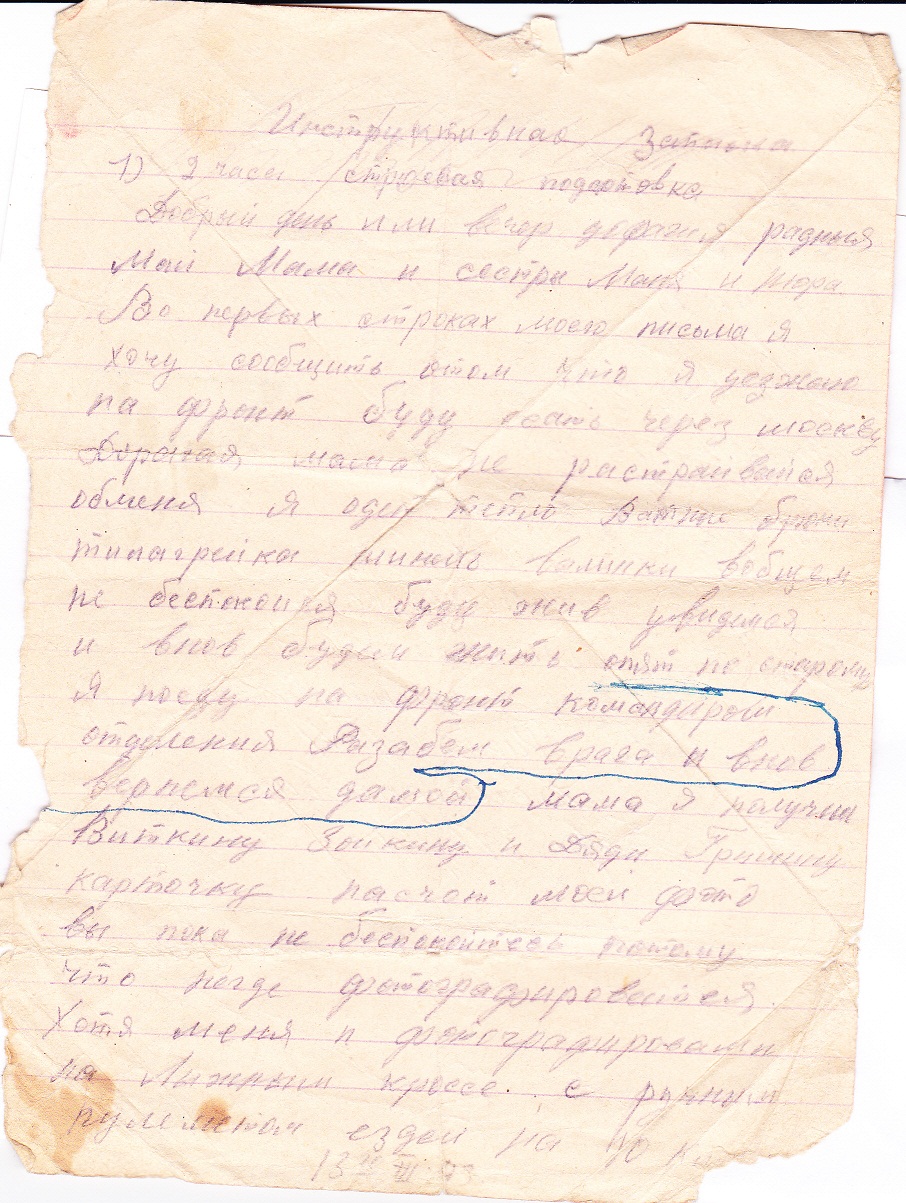 Инструктивная записка
1) 2 часа строевая подготовка
Добрый день или вечер радныя
Маи Мама и сестры Маня и
Во первых строках моего письма я
хочу сообщить отом что я уезжаю
на фронт буду ехать через москву
Дорогая мама не растраивайся
обменя я одет тепло Ватные брюки
тилагрейка валинки вобщем
не беспокойся буду жив увидимся
и внов будем жить опят по старому
Я поеду на фронт командиром
отделения Разабем врага и внов
вернемся дамой мама я получил
Виткину Зойкину и Дяди Гришину
карточку насчот моей фото
вы пока не беспокойтесь потому
что негде фотографироватся
Хотя меня и фотографировали
на Лыжным кроссе с ручным
пулеметом ездел на 10
13